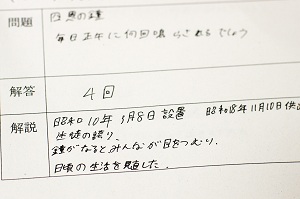 問題
四恩の鐘
毎日正午に何回鳴らされるでしょう
解答
4回
解説
昭和10年3月8日設置 昭和18年11月10日供出
生徒の誇り、
鐘がなるとみんなが目をつむり、
日頃の生活を見直した。